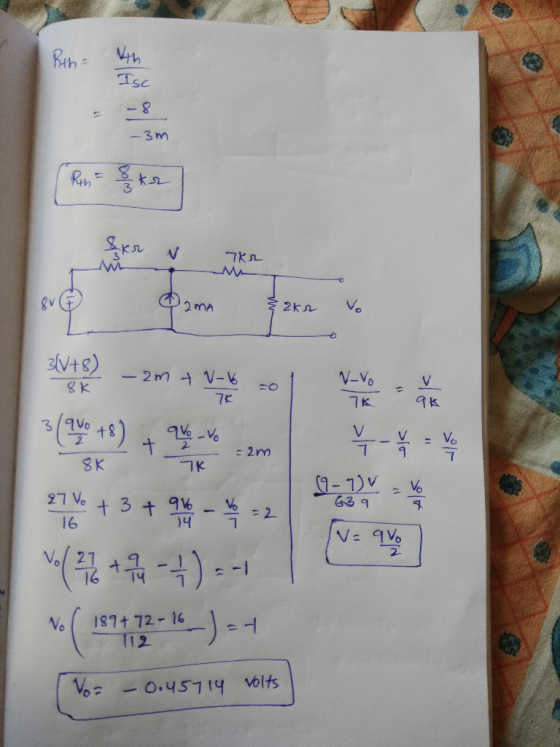 Rth = Vth / ISC
= -8 / -3m
Rth = 8/3 kΩ
8/3 kΩ V 7kΩ
8V 2mA 2kΩ Vo
3(V+8)/8K - 2m + (V-Vo)/7K = 0
3(9Vo/2 + 8)/8K + (9Vo/2 - Vo)/7K = 2m
27Vo/16 + 3 + 9Vo/14 - Vo/7 = 2
Vo(27/16 + 9/14 - 1/7) = -1
Vo((189+72-16)/112) = -1
Vo = -0.45714 volts
(V-Vo)/7K = V/9K
V/7 - V/9 = Vo/7
(9-7)V/63 = Vo/7
V = 9Vo/2